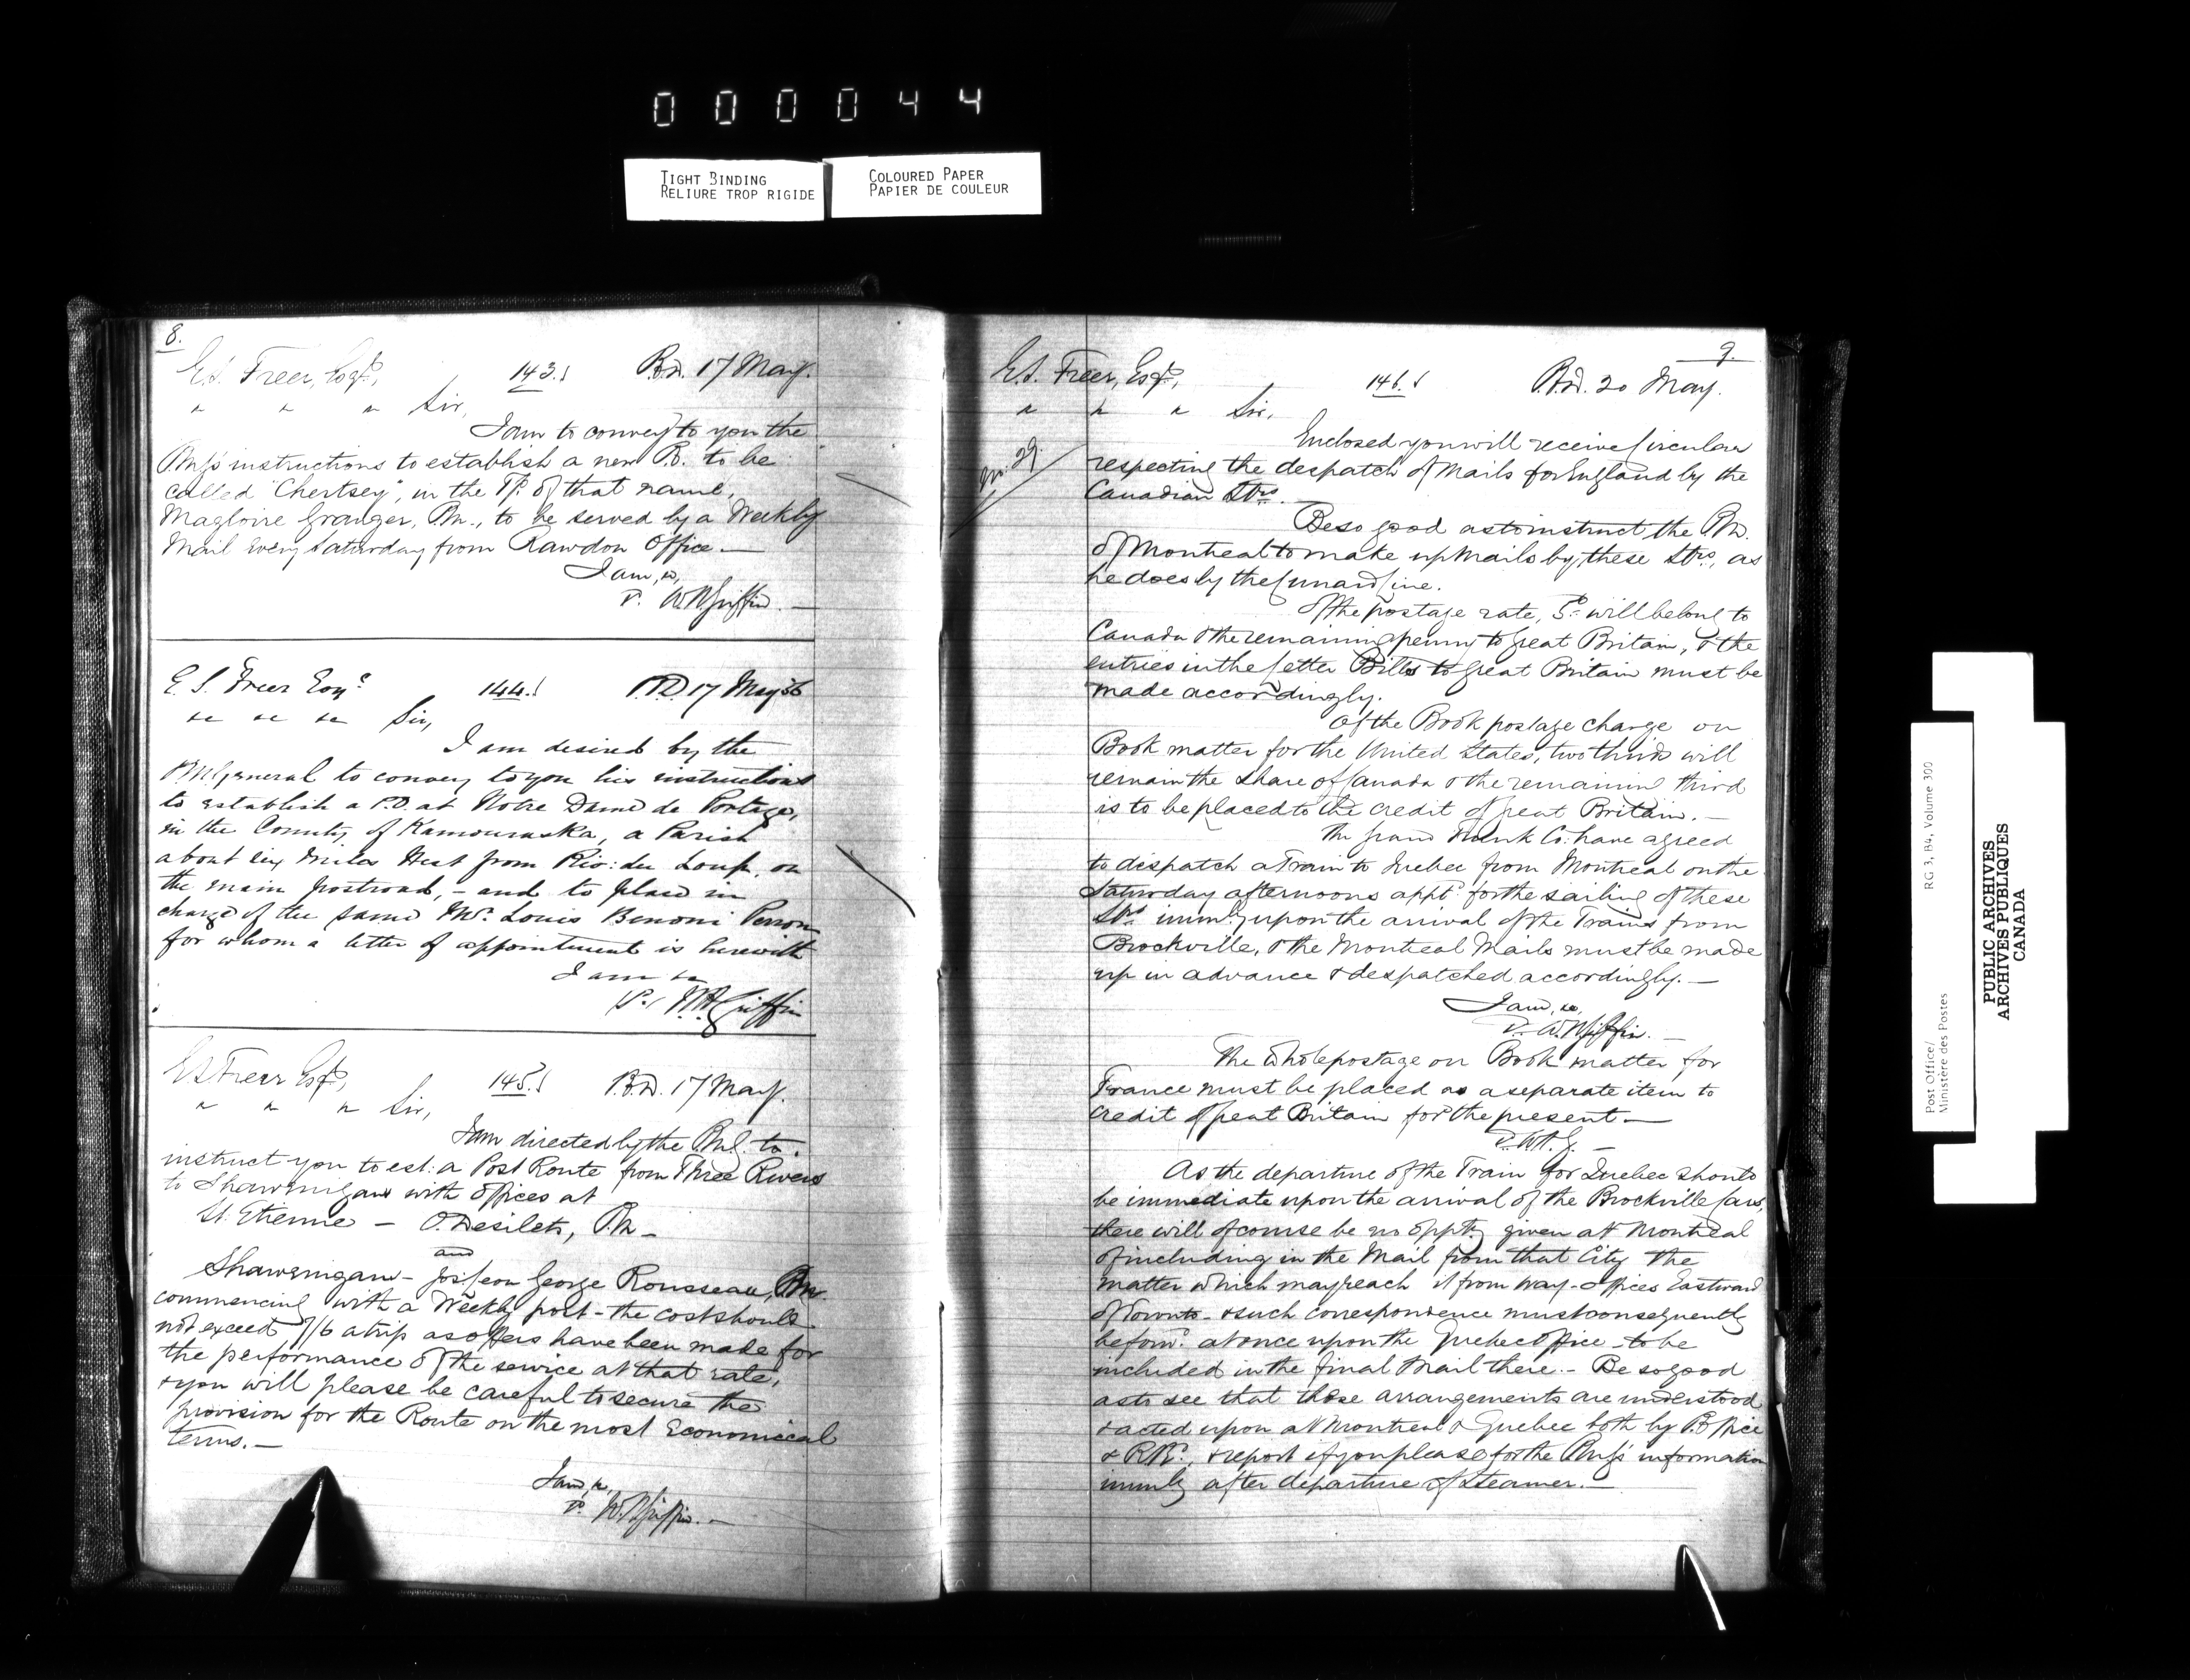 000044
TIGHT BINDING
RELIURE TROP RIGIDE
COLOURED PAPER
PAPIER DE COULEUR
8.
E.S. Freer, Esqe, 143. P.O.D. 17 May.
" " " Sir,
I am to convey to you the
PMG's instructions to establish a new P.O. to be
called "Chertsey", in the Tp. of that name,
Magloire Granger, PM., to be served by a Weekly
Mail every Saturday from Rawdon Office. —
I am, &c,
W.H. Griffin. —
E. S. Freer Esqre 144. P.O.D 17 May 56
&c &c &c Sir,
I am desired by the
P.M. General to convey to you his instructions
to establish a P.O. at Notre Dame de Portage,
in the County of Kamouraska, a Parish
about six Miles West from Riv: du Loup, on
the main postroad, — and to place in
charge of the same Mr. Louis Benoni Perron
for whom a letter of appointment is herewith
I am &c
W.H. Griffin
E.S. Freer Esqe, 145. P.O.D. 17 May.
" " " Sir,
I am directed by the PMG. to
instruct you to est: a Post Route from Three Rivers
to Shawenigan with offices at
St. Etienne — O. Desilets, PM —
and
Shawenigan — George Rousseau, PM
commencing with a Weekly post — the cost should
not exceed 7/6 a trip as offers have been made for
the performance of the service at that rate,
& you will please be careful to secure the
provision for the Route on the most Economical
terms. —
I am, &c,
W.H. Griffin. —
9.
E.S. Freer, Esqe, 146. P.O.D. 20 May.
" " " Sir,
No. 29
Enclosed you will receive Circular
respecting the despatch of Mails for England by the
Canadian Strs. —
Be so good as to instruct the PM.
of Montreal to make up Mails by these Strs, as
he does by the Cunard Line.
Of the postage rate, 5d will belong to
Canada & the remaining penny to Great Britain, & the
entries in the Letter Bills to Great Britain must be
made accordingly.
Of the Book postage charge on
Book matter for the United States, two thirds will
remain the share of Canada & the remaining third
is to be placed to the credit of Great Britain. —
The Grand Trunk Co. have agreed
to dispatch a Train to Quebec from Montreal on the
Saturday afternoons appt. for the sailing of these
Strs immly upon the arrival of the Trains from
Brockville, & the Montreal Mails must be made
up in advance & despatched accordingly. —
I am, &c,
W.H. Griffin. —
The whole postage on Book matter for
France must be placed as a separate item to
credit of Great Britain for the present —
W.H.G. —
As the departure of the Train for Quebec should
be immediate upon the arrival of the Brockville Cars,
there will of course be no oppty given at Montreal
of including in the Mail from that City the
matter which may reach it from Way-offices Eastward
of Toronto — & such correspondence must consequently
be forwd. at once upon the Quebec Office — to be
included in the final Mail there. — Be so good
as to see that these arrangements are understood
& acted upon at Montreal & Quebec both by P. Office
& R.R., & report if you please for the PMG's information
immly after departure of Steamer. —
Post Office/ RG 3, B4, Volume 300
Ministère des Postes
PUBLIC ARCHIVES
ARCHIVES PUBLIQUES
CANADA